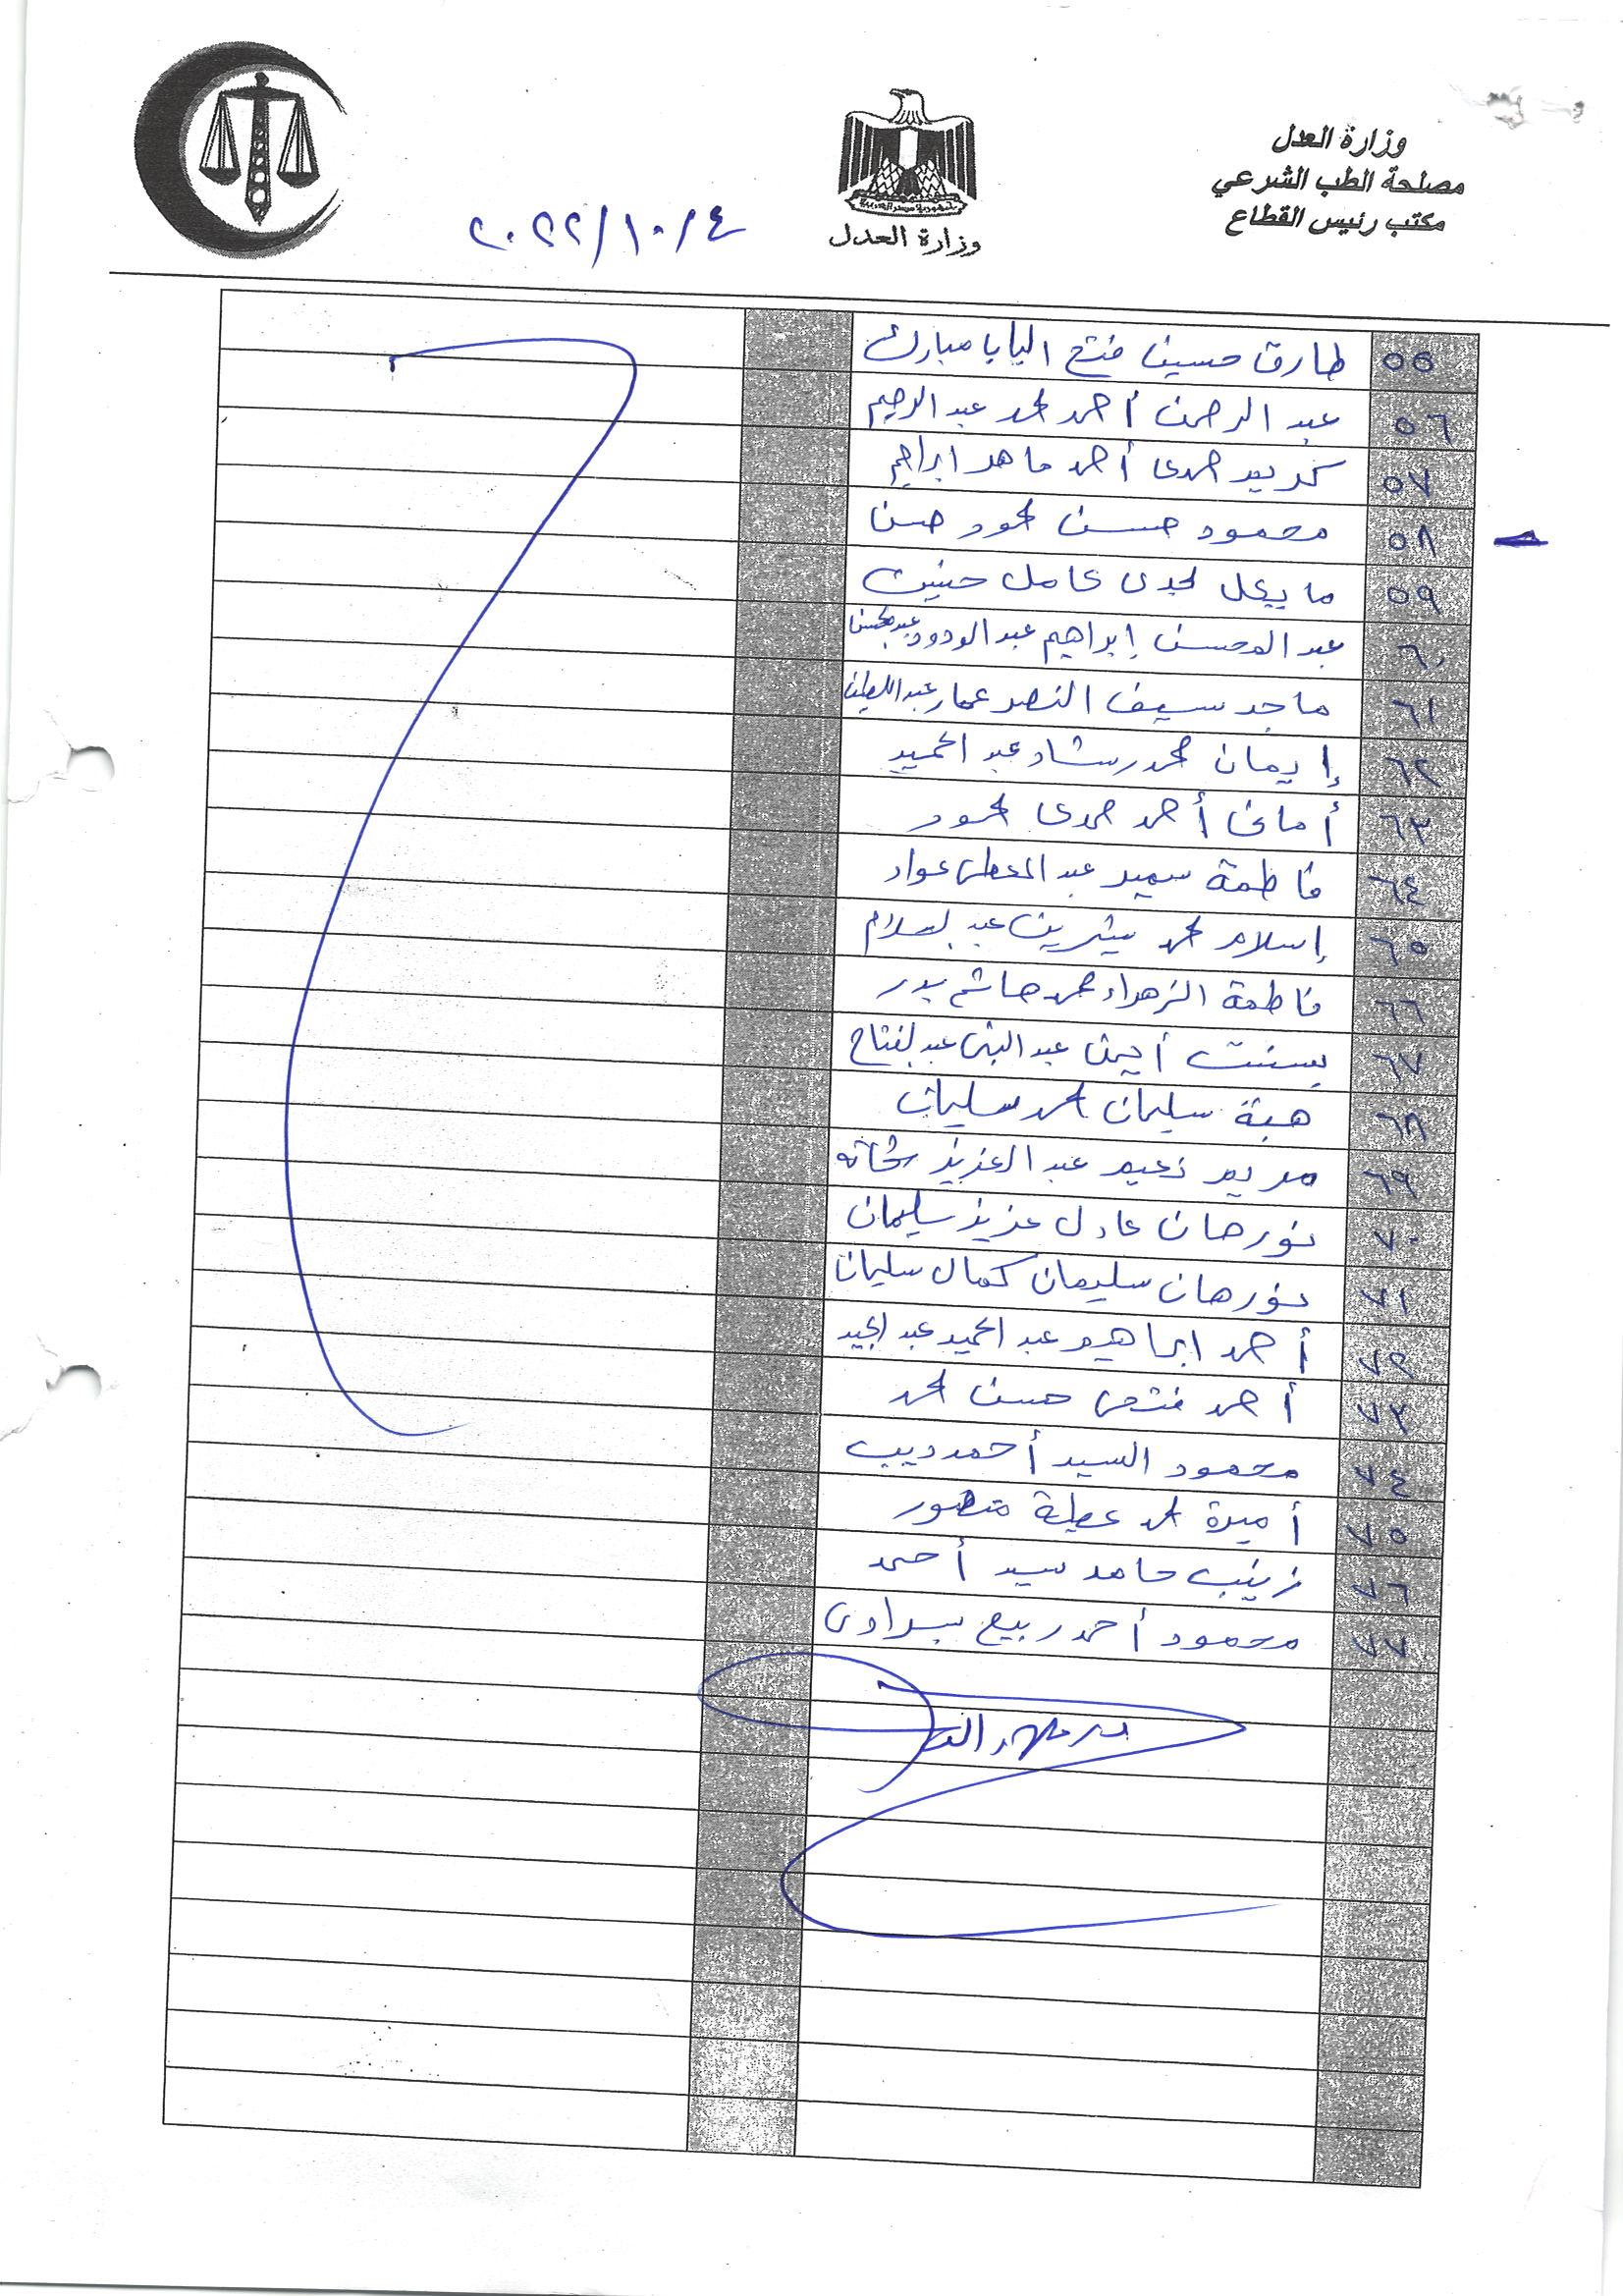 وزارة العدل
مصلحة الطب الشرعي
مكتب رئيس القطاع
وزارة العدل
٢٠٢٢/١٠/٤
٥٥ طارق حسين فتح الباب مبارك
٥٦ عبد الرحمن أحمد محمد عبد الرحيم
٥٧ كريم حمدى أحمد ماهر ابراهيم
٥٨ محمود حسن محمود حسن
٥٩ مايكل مجدى كامل حنين
٦٠ عبد المحسن إبراهيم عبد الودود عبد المحسن
٦١ ماجد سيف النصر عمار عبد اللطيف
٦٢ إيمان محمد رشاد عبد الحميد
٦٣ أمانى أحمد حمدى محمود
٦٤ فاطمة سمير عبد المعطى عواد
٦٥ إسلام محمد عبد السلام
٦٦ فاطمة الزهراء محمد هاشم بدر
٦٧ بسنت أيمن عبد النبى عبد الفتاح
٦٨ هبة سليمان محمد سليمان
٦٩ مريم نعيم عبد العزيز شحاته
٧٠ نورهان عادل عزيز سليمان
٧١ نورهان سليمان كمال سليمان
٧٢ أحمد ابراهيم عبد الحميد عبد المجيد
٧٣ أحمد فتحى حسن محمد
٧٤ محمود السيد أحمد ديب
٧٥ أميرة محمد عطية منصور
٧٦ زينب حامد سيد أحمد
٧٧ محمود أحمد ربيع